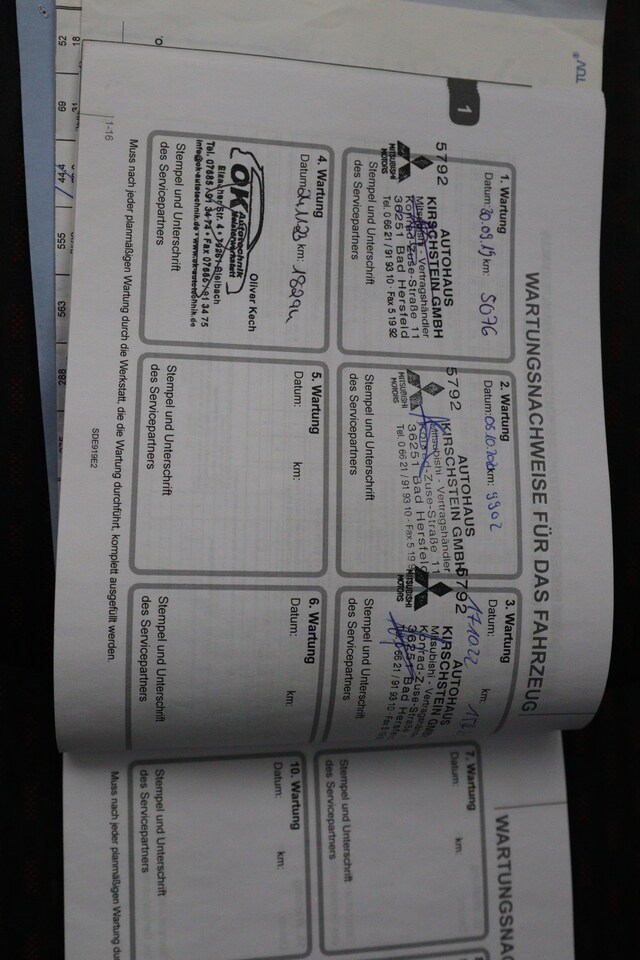 TÜV®
1
WARTUNGSNACHWEISE FÜR DAS FAHRZEUG
1. Wartung
Datum: 30.09.19 km: 5076
5792
AUTOHAUS
KIRSCHSTEIN GMBH
Mitsubishi - Vertragshändler
Konrad-Zuse-Straße 11
36251 Bad Hersfeld
Tel. 0 66 21 / 91 93 10 · Fax 5 19 92
MITSUBISHI
MOTORS
Stempel und Unterschrift
des Servicepartners
2. Wartung
Datum: km: 9902
5792
AUTOHAUS
KIRSCHSTEIN GMBH
Mitsubishi - Vertragshändler
Konrad-Zuse-Straße 11
36251 Bad Hersfeld
Tel. 0 66 21 / 91 93 10 · Fax 5 19
MITSUBISHI
MOTORS
Stempel und Unterschrift
des Servicepartners
3. Wartung
Datum: 17.10.22 km:
5792
AUTOHAUS
KIRSCHSTEIN
Mitsubishi - Vertrags
Konrad-Zuse-Straße
36251 Bad Hersf
66 21 / 91 93 10 · Fax
MITSUBISHI
MOTORS
Stempel und Unterschrift
des Servicepartners
4. Wartung
Datum: km:
Oliver Kech
OK Autotechnik
Meisterwerkstatt
Elzacher Str. 4 • Bleibach
Tel. 07685 / 91 34 74 • Fax 07685 / 91 34 75
info@ok-autotechnik.de • www.ok-autotechnik.de
Stempel und Unterschrift
des Servicepartners
5. Wartung
Datum: km:
Stempel und Unterschrift
des Servicepartners
6. Wartung
Datum: km:
Stempel und Unterschrift
des Servicepartners
Muss nach jeder planmäßigen Wartung durch die Werkstatt, die die Wartung durchführt, komplett ausgefüllt werden.
1-16
SDE919E2
WARTUNGSNAC
7. Wartung
Datum: km:
Stempel und Unterschrift
des Servicepartners
10. Wartung
Datum: km:
Stempel und Unterschrift
des Servicepartners
Muss nach jeder planmäßigen Wartung du
18
52
69
44,4
555
563
288